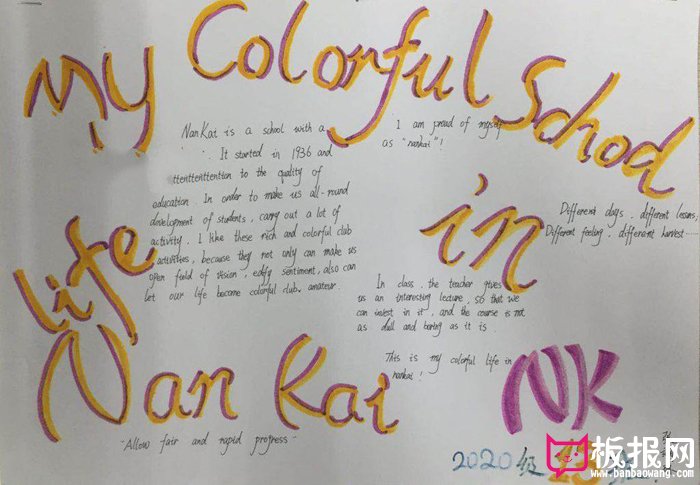 My Colorful School
life in
Nan Kai
NanKai is a school with a
. It started in 1936 and
ttenttenttention to the quality of
education. In order to make us all-round
development of students, carry out a lot of
activity. I like these rich and colorful club
activities, because they not only can make us
open field of vision, edify sentiment, also can
let our life become colorful club, amateur.
I am proud of myself
as "nankai"!
Different days, different lessons,
Different feeling, different harvest……
In class, the teacher gives
us an interesting lecture, so that we
can invest in it, and the course is not
as dull and boring as it is.
This is my colorful life in
nankai!
NK
-Allow fair and rapid progress-
2020级
板报网
www.banbaowang.com